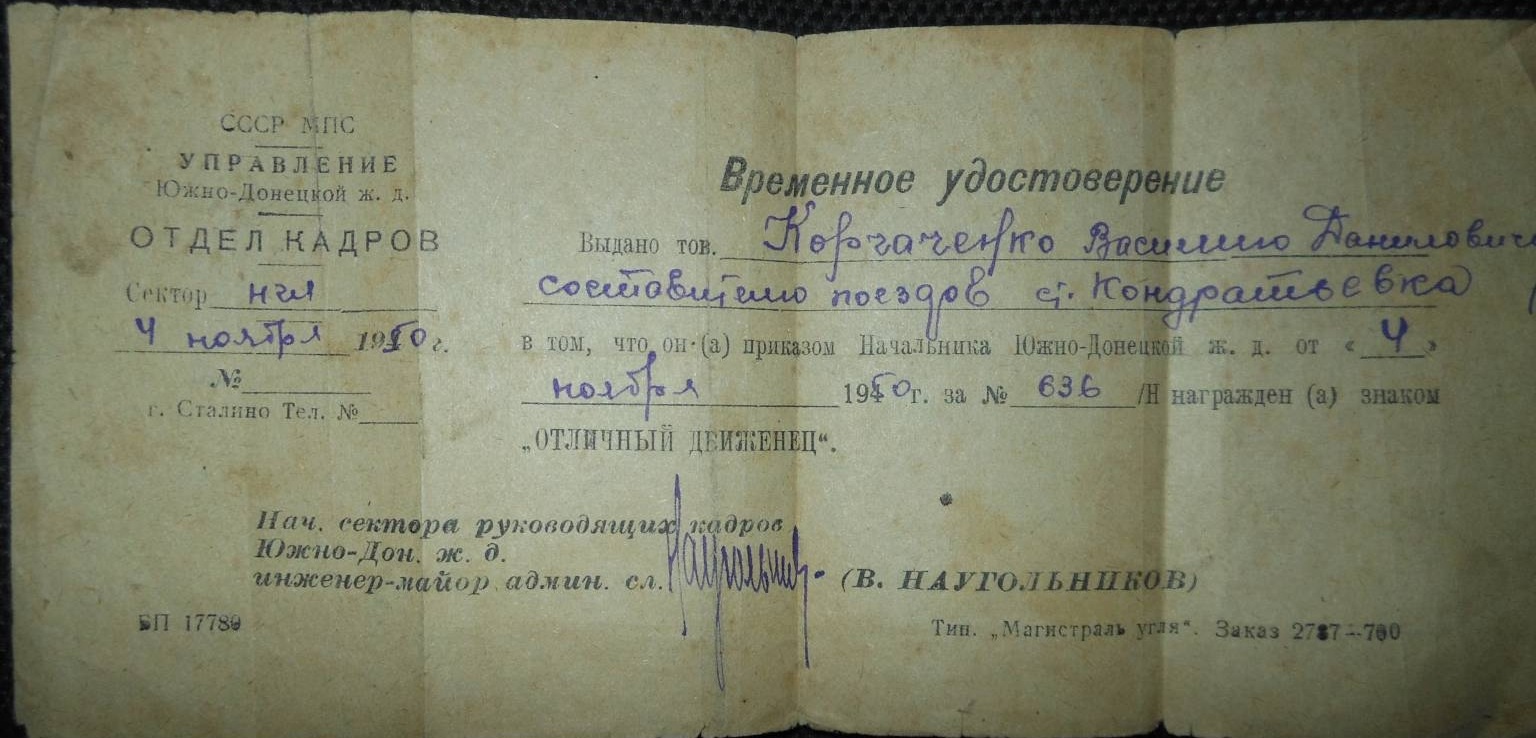 СССР МПС
УПРАВЛЕНИЕ
Южно-Донецкой ж. д.
ОТДЕЛ КАДРОВ
Сектор
4 ноября 1950 г.
№
г. Сталино Тел. №
Временное удостоверение
Выдано тов. Корчаченко Василию Даниловичу
составителю поездов ст. Кондратьевка
в том, что он (а) приказом Начальника Южно-Донецкой ж. д. от « 4 »
ноября 1950 г. за № 636 /Н награжден (а) знаком
„ОТЛИЧНЫЙ ДВИЖЕНЕЦ“.
Нач. сектора руководящих кадров
Южно-Дон. ж. д.
инженер-майор админ. сл. Наугольник (В. НАУГОЛЬНИКОВ)
БП 17789 Тип. „Магистраль угля“. Заказ 2787—700